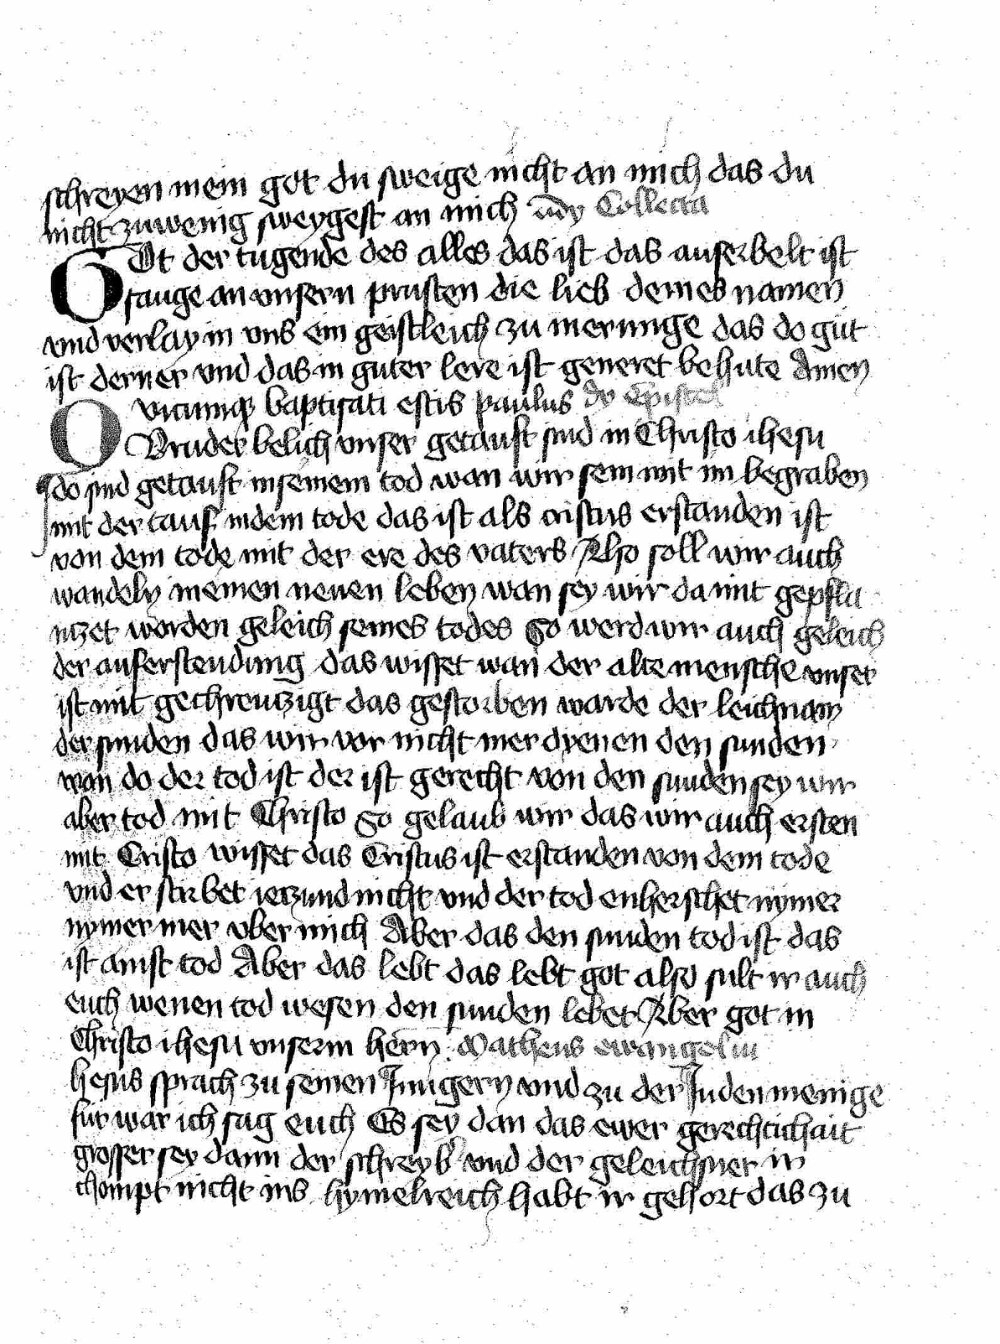 schreyen mein got du sweige nicht an mich das du
nicht zuwenig sweygest an mich Collecta
Got der tugende des alles das ist das auserbelt ist
fauge an vnsern prusten die lieb deines namen
vnd verlay in vns ein geistleich zu merunge das do gut
ist derner vnd das in guter lere ist generet behute Amen
Quicumq baptisati estis paulus Epistel
Bruder belich vnser getauft sind in Christo ihesu
do sind getauft in seinem tod wan wir sein mit im begraben
mit der tauf in dem tode das ist als cristus erstanden ist
von dem tode mit der ere des vaters Also soll wir auch
wandeln in einen neuen leben wan sey wir da mit gepfla
nzet worden geleich seines todes So werd wir auch geleich
der auferstendung das wisset wan der alte mensche vnser
ist mit gechreuzigt das gestorben warde der leichnam
der sunden das wir vor nicht mer dyenen den sunden
wan do der tod ist der ist gerecht von den sunden sey wir
aber tod mit Christo So gelaub wir das wir auch ersten
mit Cristo wisset das Cristus ist erstanden von dem tode
vnd er stirbet ieczund nicht vnd der tod enherschet nymer
nymer mer vber mich Aber das den sunden tod ist das
ist ainst tod Aber das lebt das lebt got also sult ir auch
euch wenen tod wesen den sunden lebet Aber got in
Christo ihesu vnserm hern Matheus ewangeliu
hesus sprach zu seinen Jungern vnd zu der Juden menige
fur war ich sag euch Es sey dan das ewer gerechtichait
grosser sey dann der schreyb vnd der geleichsner ir
chompt nicht ins hymelreich habt ir gehort das zu